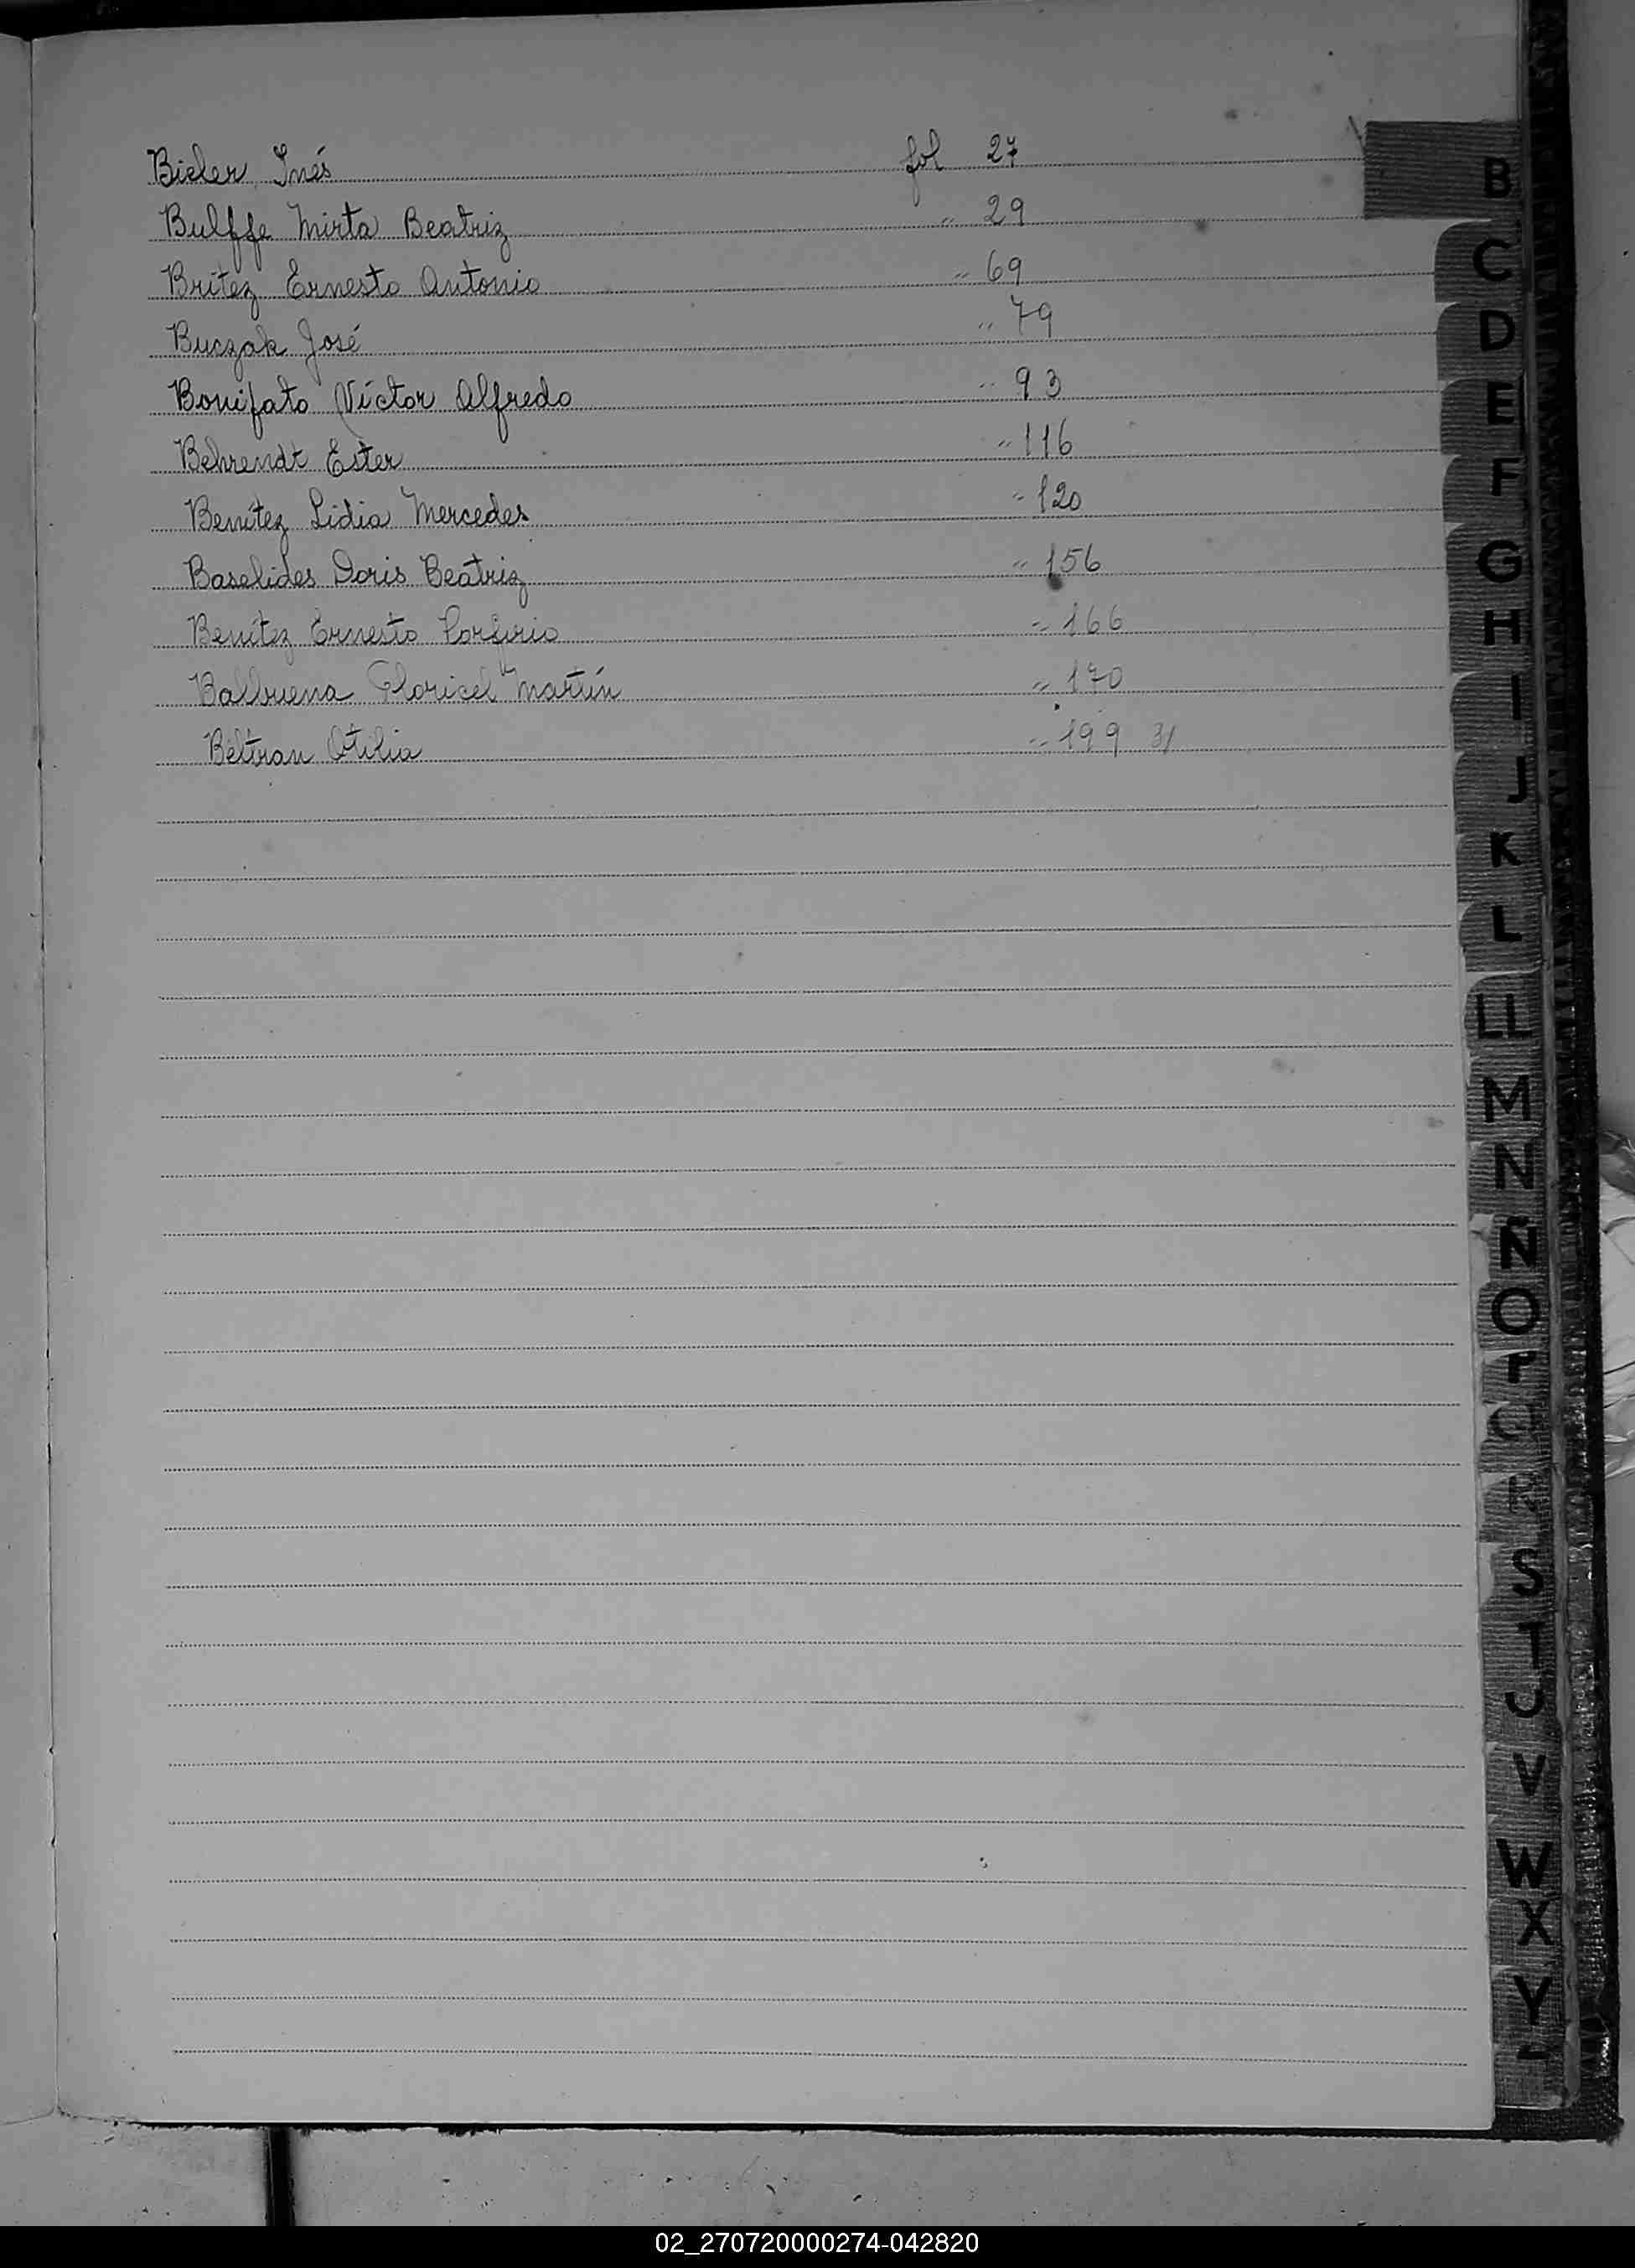 Bieler Inés fol 27
Bulffe Mirta Beatriz " 29
Britez Ernesto Antonio " 69
Buczak José " 79
Bonifato Víctor Alfredo " 93
Behrendt Ester " 116
Benítez Lidia Mercedes " 120
Baselides Doris Beatriz " 156
Benítez Ernesto Porfirio " 166
Balbuena Floricel Martín " 170
Beltran Otilia " 199
B
C
D
E
F
G
H
I
J
K
L
LL
M
N
Ñ
O
P
Q
R
S
T
U
V
W
X
Y
02_270720000274-042820